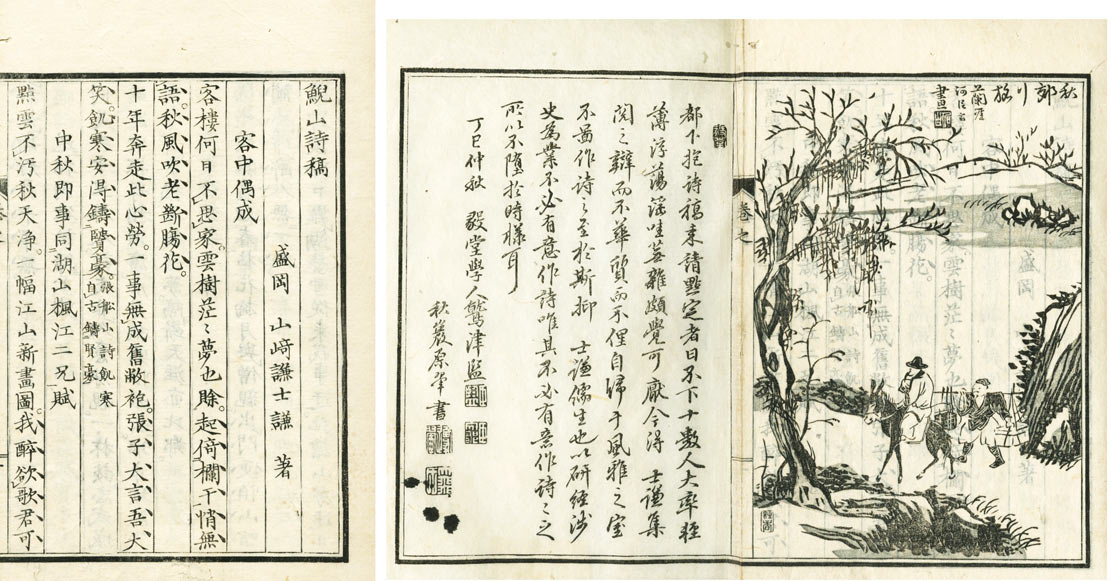 秋郊行旅
蘭涯
都下抱詩稿来請點定者日不下十數人大率輕
薄浮蕩淫哇蕪雜頗覺可厭今得 士謙集
閱之辯而不華質而不俚自歸于風雅之室
不啚作詩之至於斯抑 士謙儒生也以研經涉
史為業不必有意作詩唯其不必有意作詩之之
所以不墮於時樣耳
丁巳仲秋 毅堂學人鷲津監
秋巖原筆書
鯢山詩稿
盛岡 山﨑謙士謙 著
客中偶成
客樓何日不思家。雲樹茫〻夢也賒。起倚欄干悄無
語。秋風吹老斷腸花。
十年奔走此心勞。一事無成舊敝袍。張子大言吾大
笑。飢寒安得鑄賢豪。張船山詩飢寒自古鑄賢豪
中秋即事同湖山楓江二兄賦
點雲不汚秋天浄。一幅江山新畫圖。我醉欲歌君可